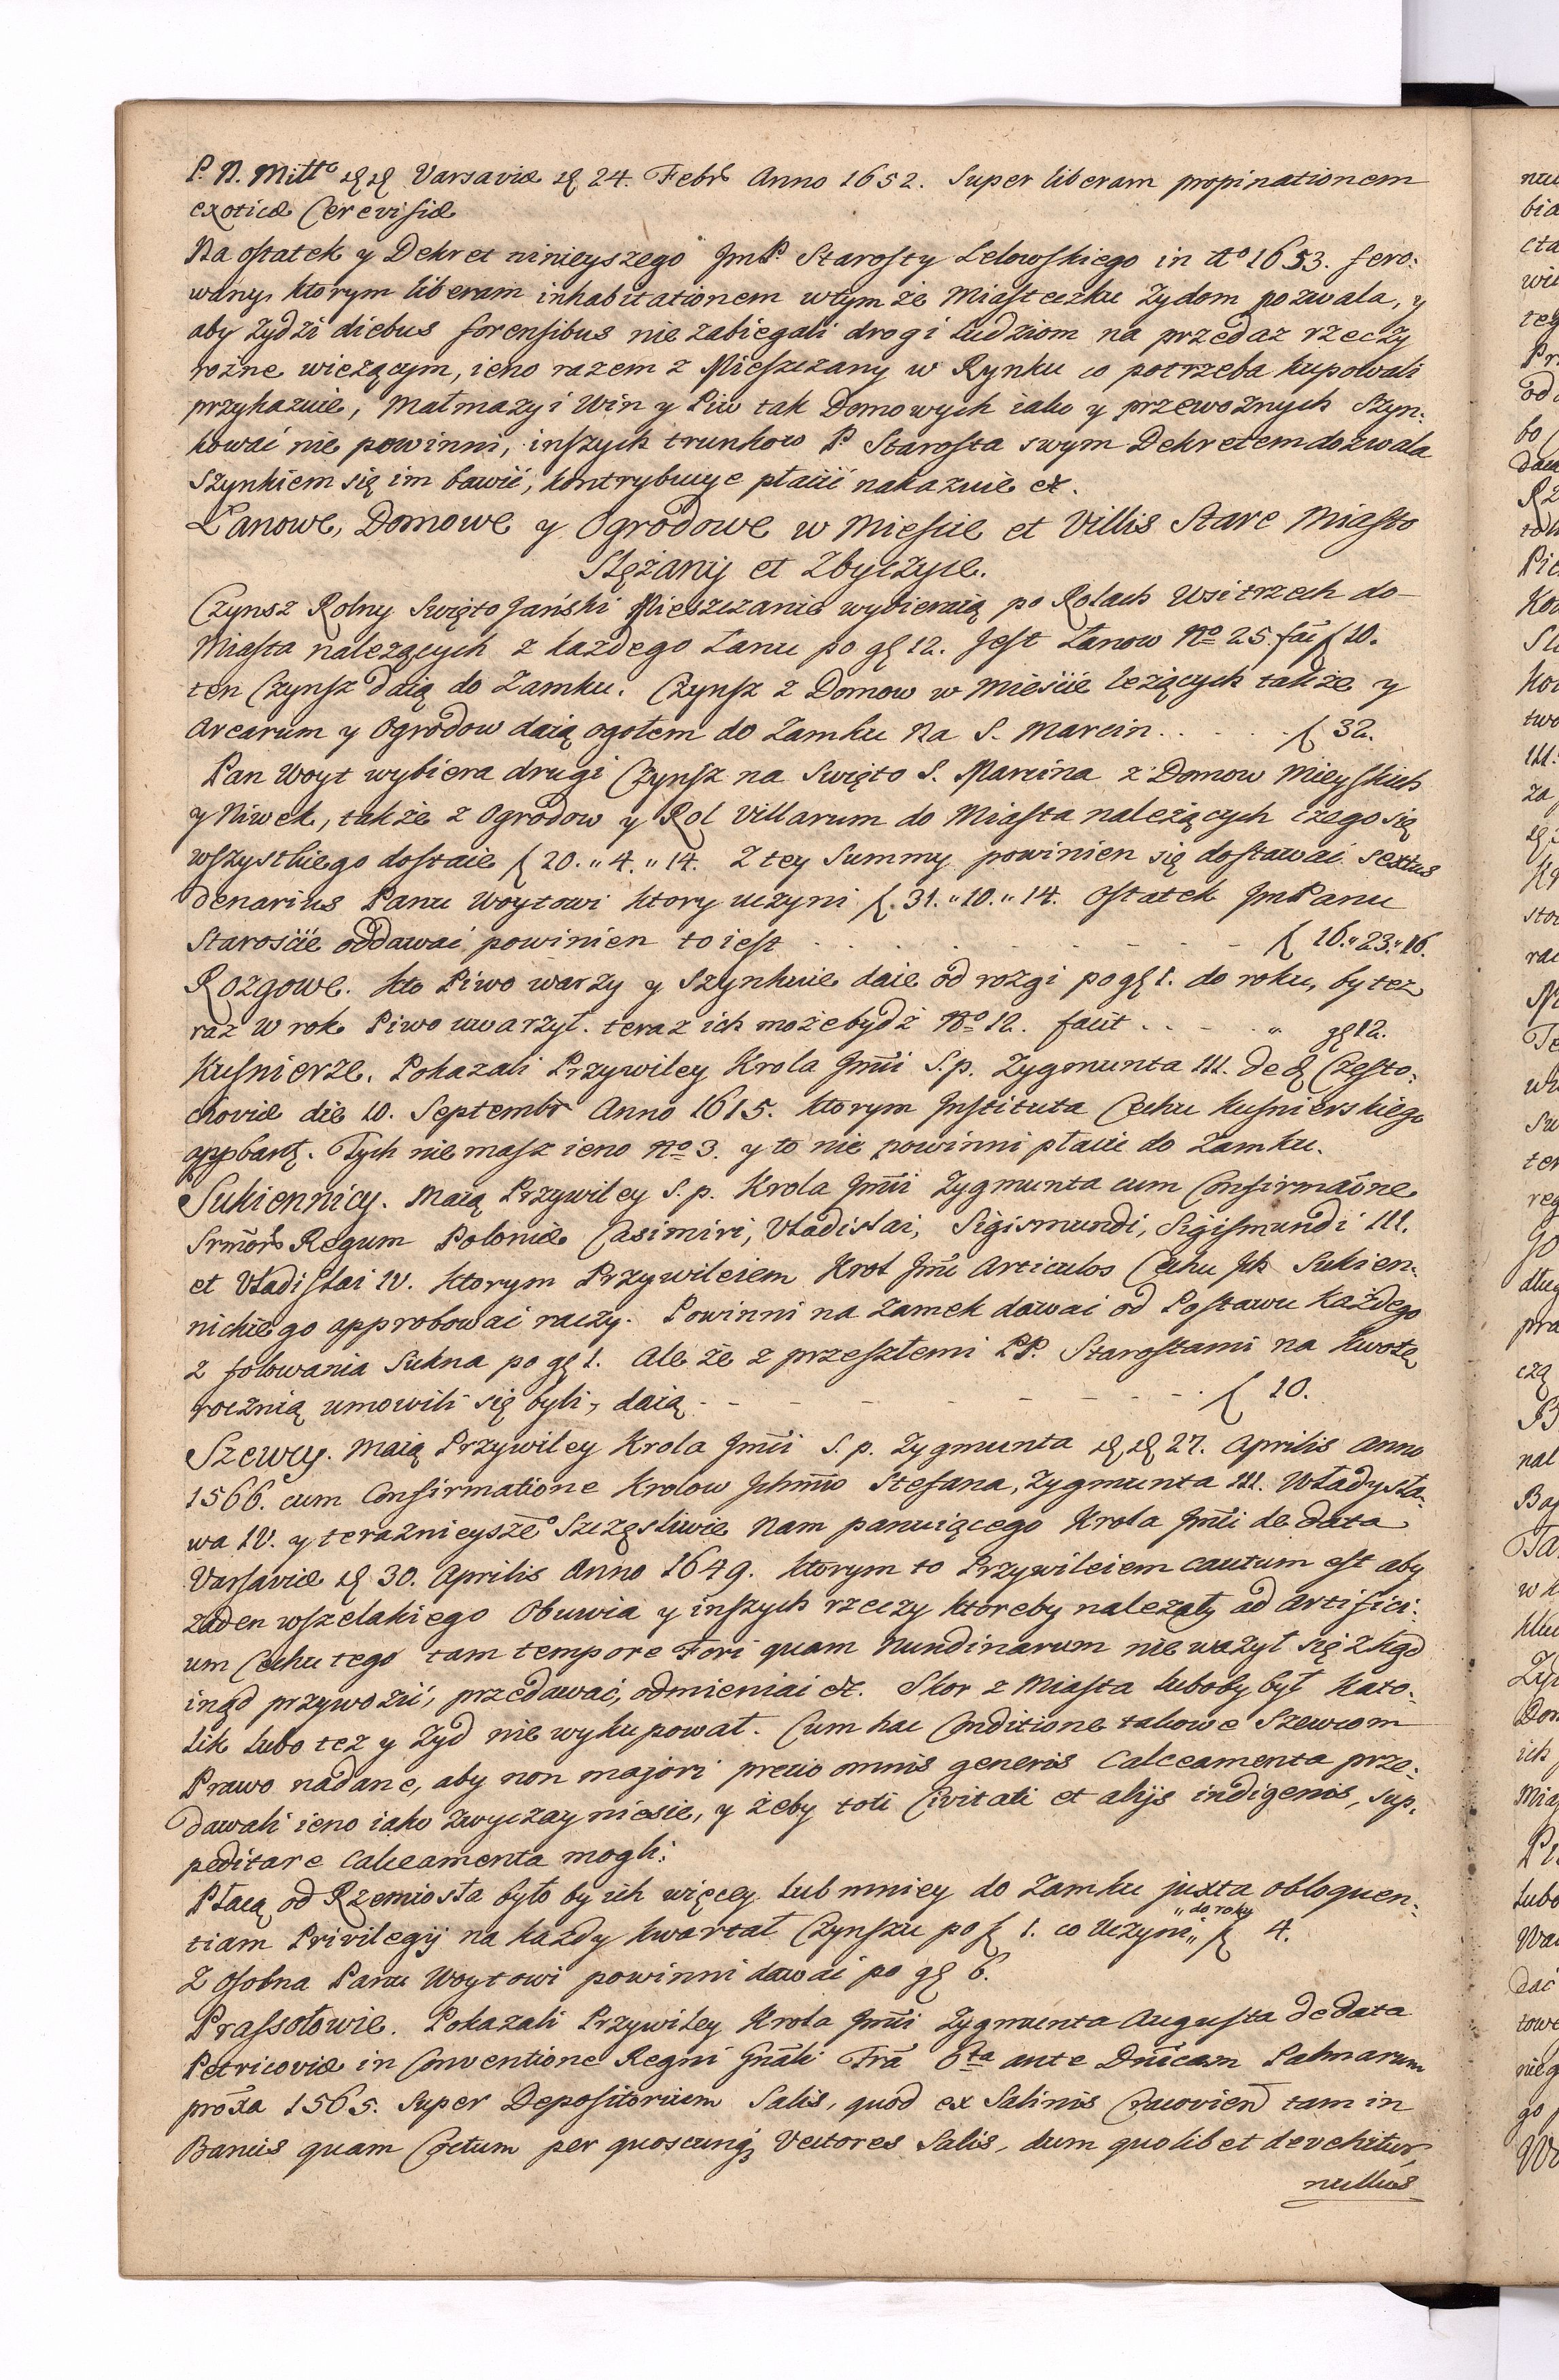 P. N. Mitto de de Varsaviæ de 24. Febr Anno 1652. Super liberam propinationem
exoticæ Cerevisiæ
Na ostatek y Dekret ninieyszego JmP. Starosty Lelowskiego in Ao 1653. fero-
wany, ktorym liberam inhabitationem wtym że Miasteczku Zydom pozwala, y
aby Zydzi diebus forensibus nie zabiegali drogi Ludziom na przedaz rzeczy
rożne wieżącym, ieno razem z Mieszczany w Rynku co potrzeba kupowali
przykazuie, Małmazyi Win y Piw tak Domowych iako y przewoznych Szyn-
kować nie powinni, inszych trunkow P. Starosta swym Dekretem dozwala
szynkiem się im bawić, kontrybucye płacić nakazuie etc.
Łanowe, Domowe y Ogrodowe w Mieście et Villis Stare Miasto
Slężany et Zbyczyce.
Czynsz Rolny Swięto Jański Mieszczanie wybieraią po Rolach Wsi trzech do
Miasta należących z każdego Łanu po gr 12. Jest Łanow No 25. fac f 10.
ten Czynsz daią do Zamku. Czynsz z Domow w Mieście leżących także y
Arearum y Ogrodow daią ogołem do Zamku Na S. Marcin . . . . . f 32.
Pan Woyt wybiera drugi Czynsz na Swięto S. Marcina z Domow Mieyskich
y Niwek, także z Ogrodow y Rol Villarum do Miasta należących czego się
wszystkiego dostaie f 20. " 4. " 14. Z tey Summy powinien się dostawać sextus
denarius Panu Woytowi ktory uczyni f. 31. " 10. " 14. Ostatek JmPanu
Starości̇e oddawać powinien to iest . . . . . . . f 16. " 23. " 16.
Rozgowe. Kto Piwo warzy y Szynkuie daie od rozgi po gr 1. do roku, by tez
raz w rok Piwo uwarzył. teraz ich może bydź No 12. facit . . . . " gr 12.
Kuśnierze. Pokazali Przywiley Krola Jmci S.p. Zygmunta III. de d Czesto-
choviæ die 10. Septembr Anno 1615. ktorym Instituta Cechu kusnierskiego
appbantę. Tych nie masz ieno No 3. y to nie powinni płacić do Zamku.
Sukiennicy. Maią Przywiley S. p. Krola Jmci Zygmunta cum Confirmaone
Srmor Regum Poloniæ Casimiri, Vładislai, Sigismundi, Sigismundi III.
et Vładislai IV. ktorym Przywileiem Krol Jmc Articulos Cechu Ich Sukien-
nickiego approbować raczy. Powinni na Zamek dawać od Postawu każdego
z folowania Sukna po gr 1. Ale że z przeszłemi PP. Starostami na kwotę
rocznią umowili się byli, daią . - - - - - - . f 10.
Szewcy. Maią Przywiley Krola Jmci S. p. Zygmunta de de 27. Aprilis Anno
1566. cum Confirmatione Krolow Ichmciow Stefana, Zygmunta III. Władysła-
wa IV. y teraznieysze° Szczęsliwie Nam panuiącego Krola Jmci de data
Varsaviæ de 30. Aprilis Anno 1649. ktorym to Przywileiem cautum est aby
żaden wszelakiego Obuwia y inszych rzeczy ktoreby należały ad Artifici-
um Cechu tego tam tempore Fori quam Nundinarum nie ważył się zkąd
inąd przywozić, przedawać, odmieniać etc. Skor z Miasta luboby był Kato-
lik lubo też y Zyd nie wykupował. Cum hac Conditione takowe Szewcom
Prawo nadane, aby non majori precio omnis generis Calceamenta prze-
dawali ieno iako zwyczay niesie, y żeby toti Civitati et alijs indigenis, sup-
peditare Calceamenta mogli.
Płacą od Rzemiosła było by ich więcey lub mniey do Zamku juxta obloquen-
tiam Privilegij na każdy kwartał Czynszu po f 1. co Uczyni "do roku" f 4.
Z osobna Panu Woytowi powinni dawać po gr 6.
Prassołowie. Pokazali Przywiley Krola Jmci Zygmunta Augusta de data
Petricoviæ in Conventione Regni Gnali Fra 6ta ante Dnicam Palmarum
proxa 1565. Super Depositorium Salis, quod ex Salinis Cracovien tam in
Bancis quam Coctum per quoscunq; Vectores Salis, dum quolibet devehitur,
nullus